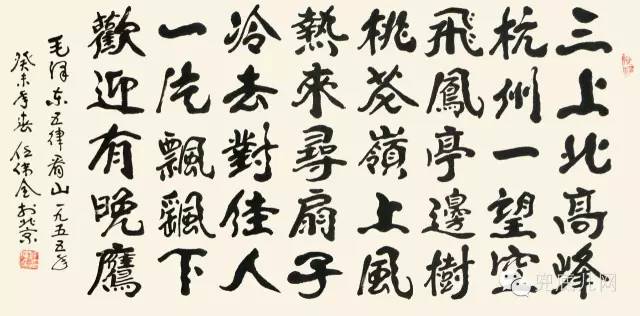 三上北高峰
杭州一望空
飛鳳亭邊樹
桃花嶺上風
熱來尋扇子
冷去對佳人
一片飄颻下
歡迎有晚鷹
毛泽东五律看山一九五五年
癸未年春 任 于北京